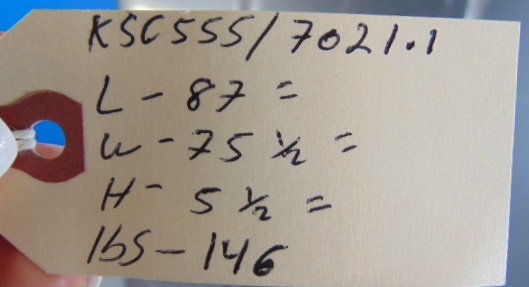 KSC555/7021.1
L - 87 =
W - 75 ½ =
H - 5 ½ =
lbs - 146